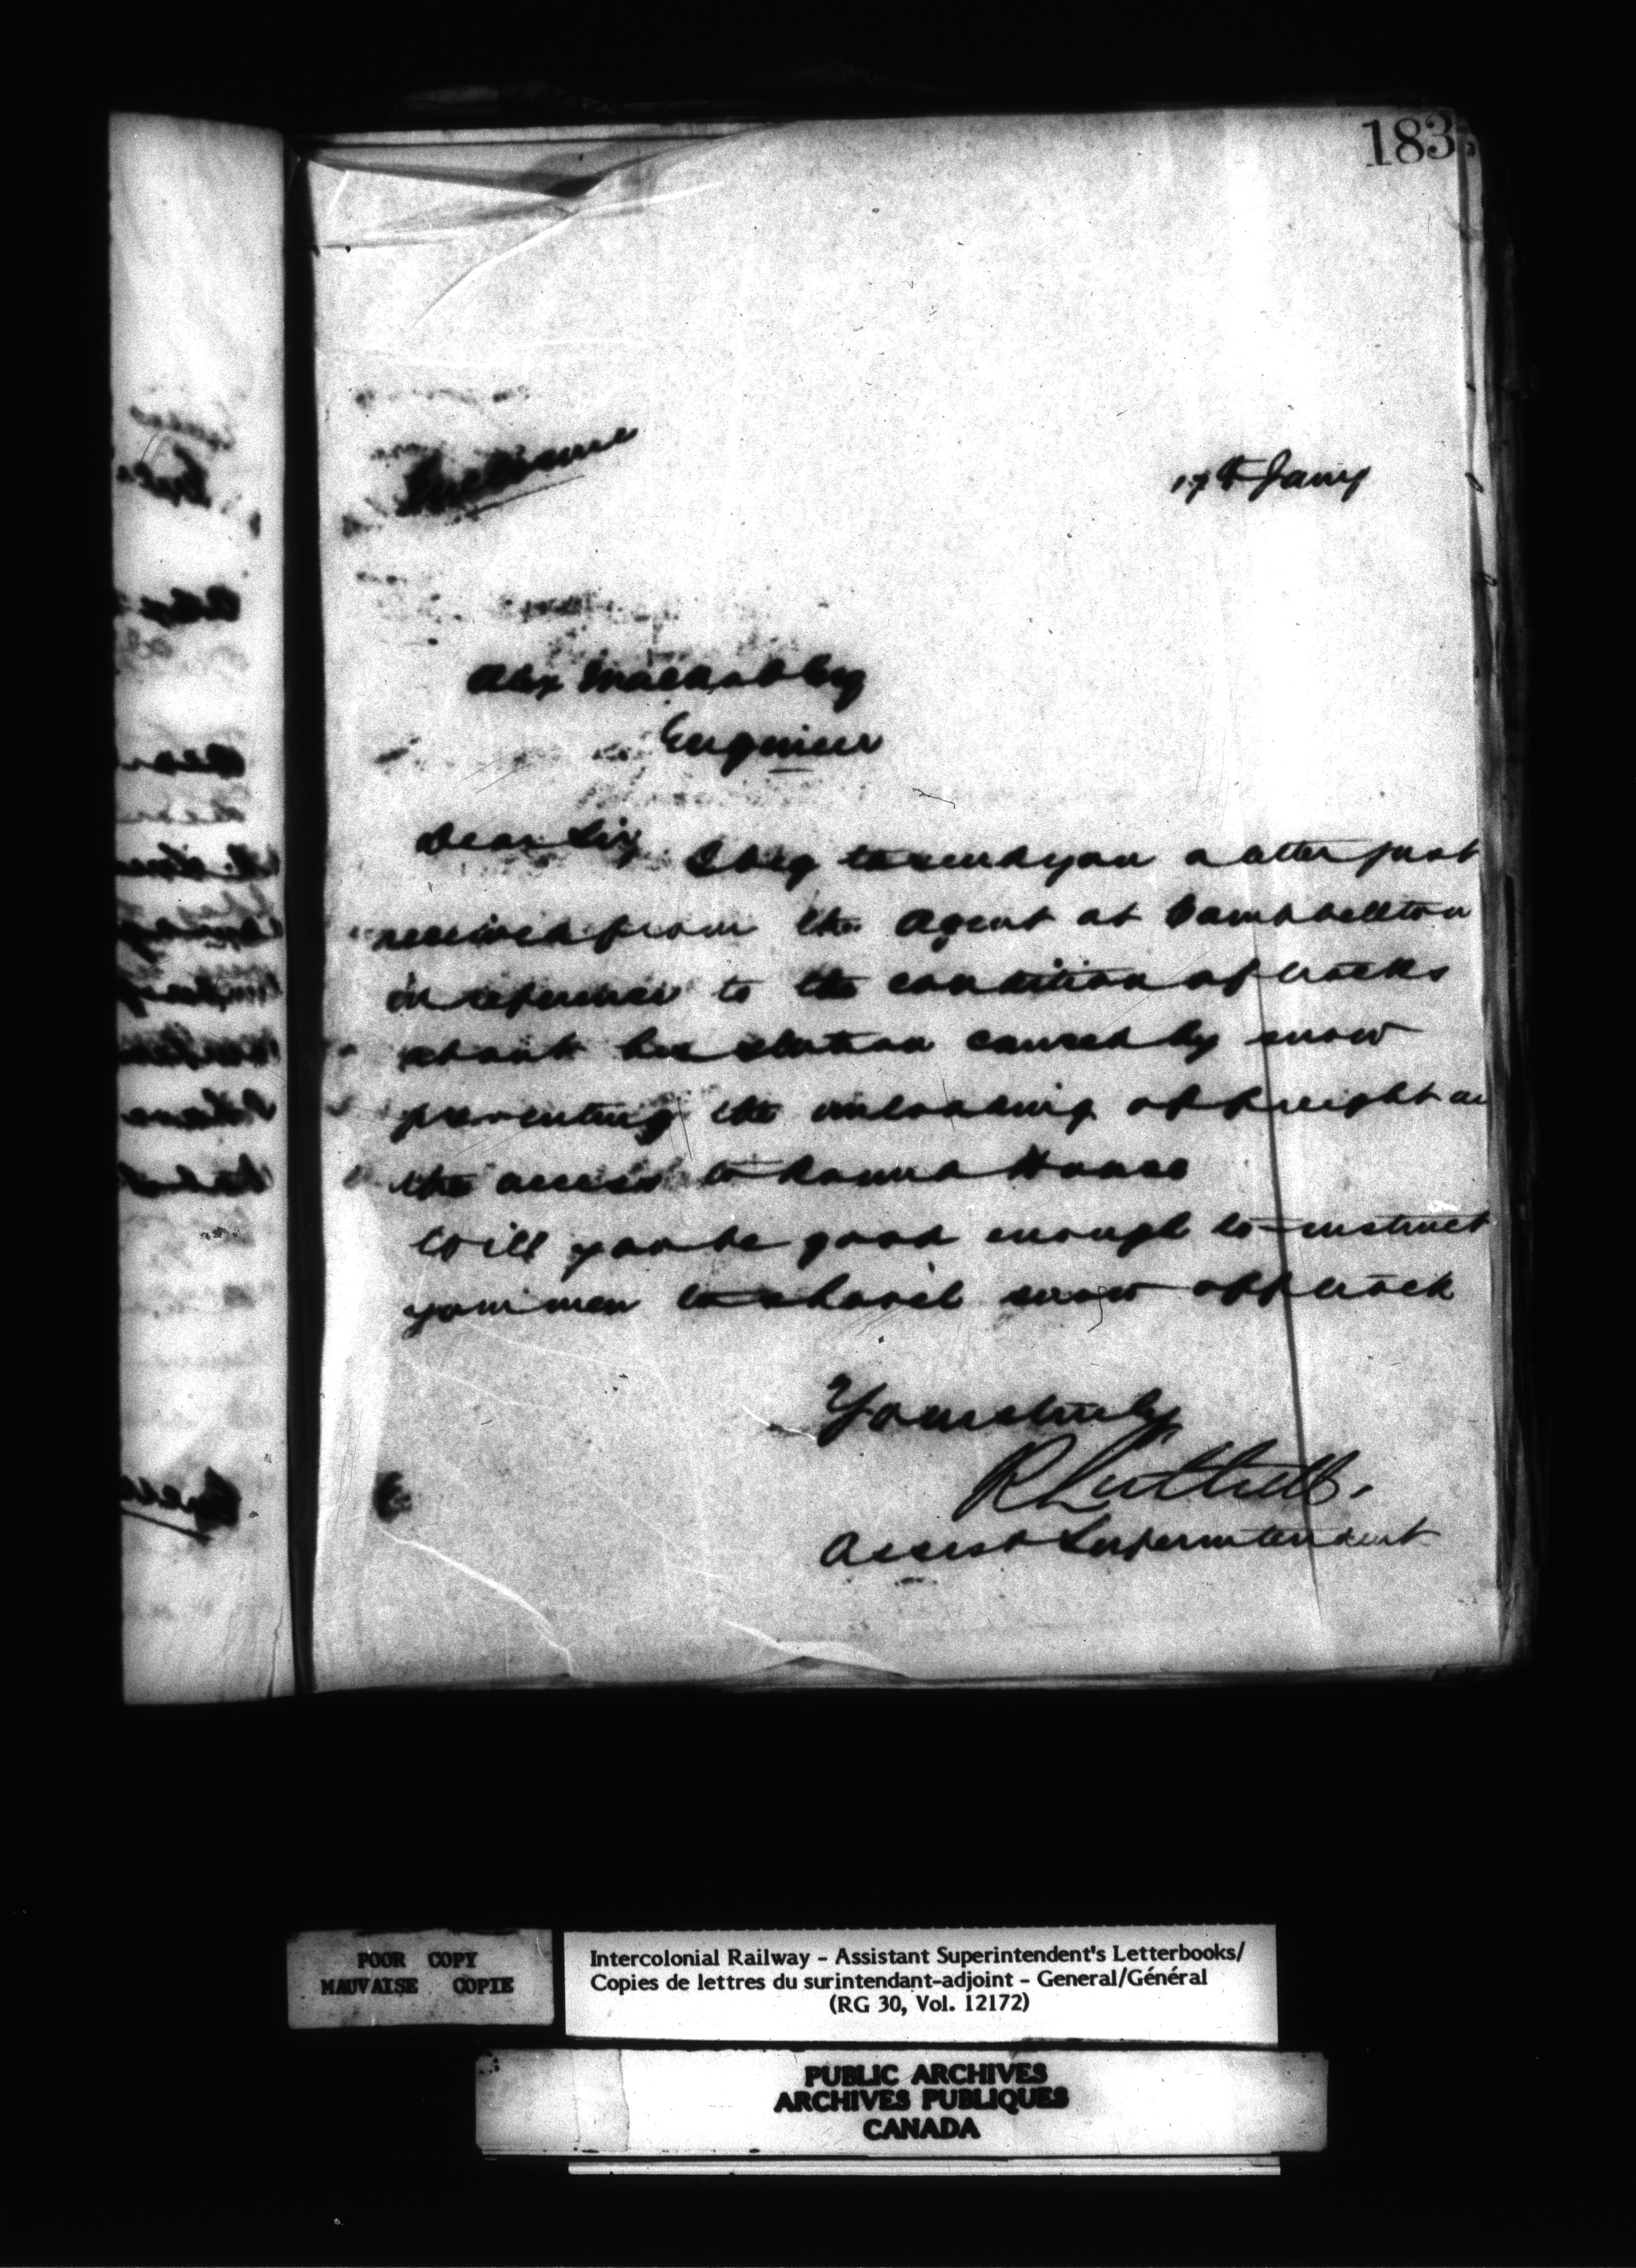 183
Enclosure
17th Jany
Alex
Engineer
Dear Sir I beg to send you a letter just
received from the Agent at Campbellton
in reference to the condition of tracks
about his station caused by snow
preventing the unloading of freight
the access to Round House
Will you be good enough to instruct
your men to shovel snow off track
Yours truly
R Luttrell.
Assist Superintendent
POOR COPY
MAUVAISE COPIE
Intercolonial Railway - Assistant Superintendent's Letterbooks/
Copies de lettres du surintendant-adjoint - General/Général
(RG 30, Vol. 12172)
PUBLIC ARCHIVES
ARCHIVES PUBLIQUES
CANADA